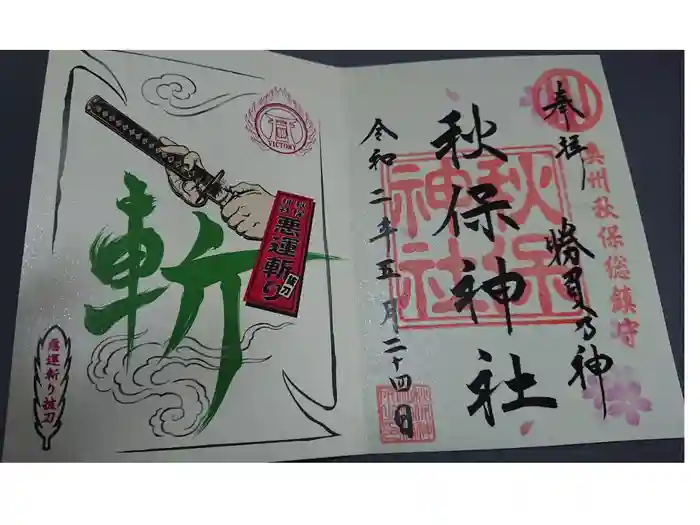 奉拝
奥州秋保総鎮守
勝負乃神
秋保神社
秋保
神社
令和二年五月二十四日
勝
VICTORY
悪運斬り
抜刀
斬
悪運斬り抜刀